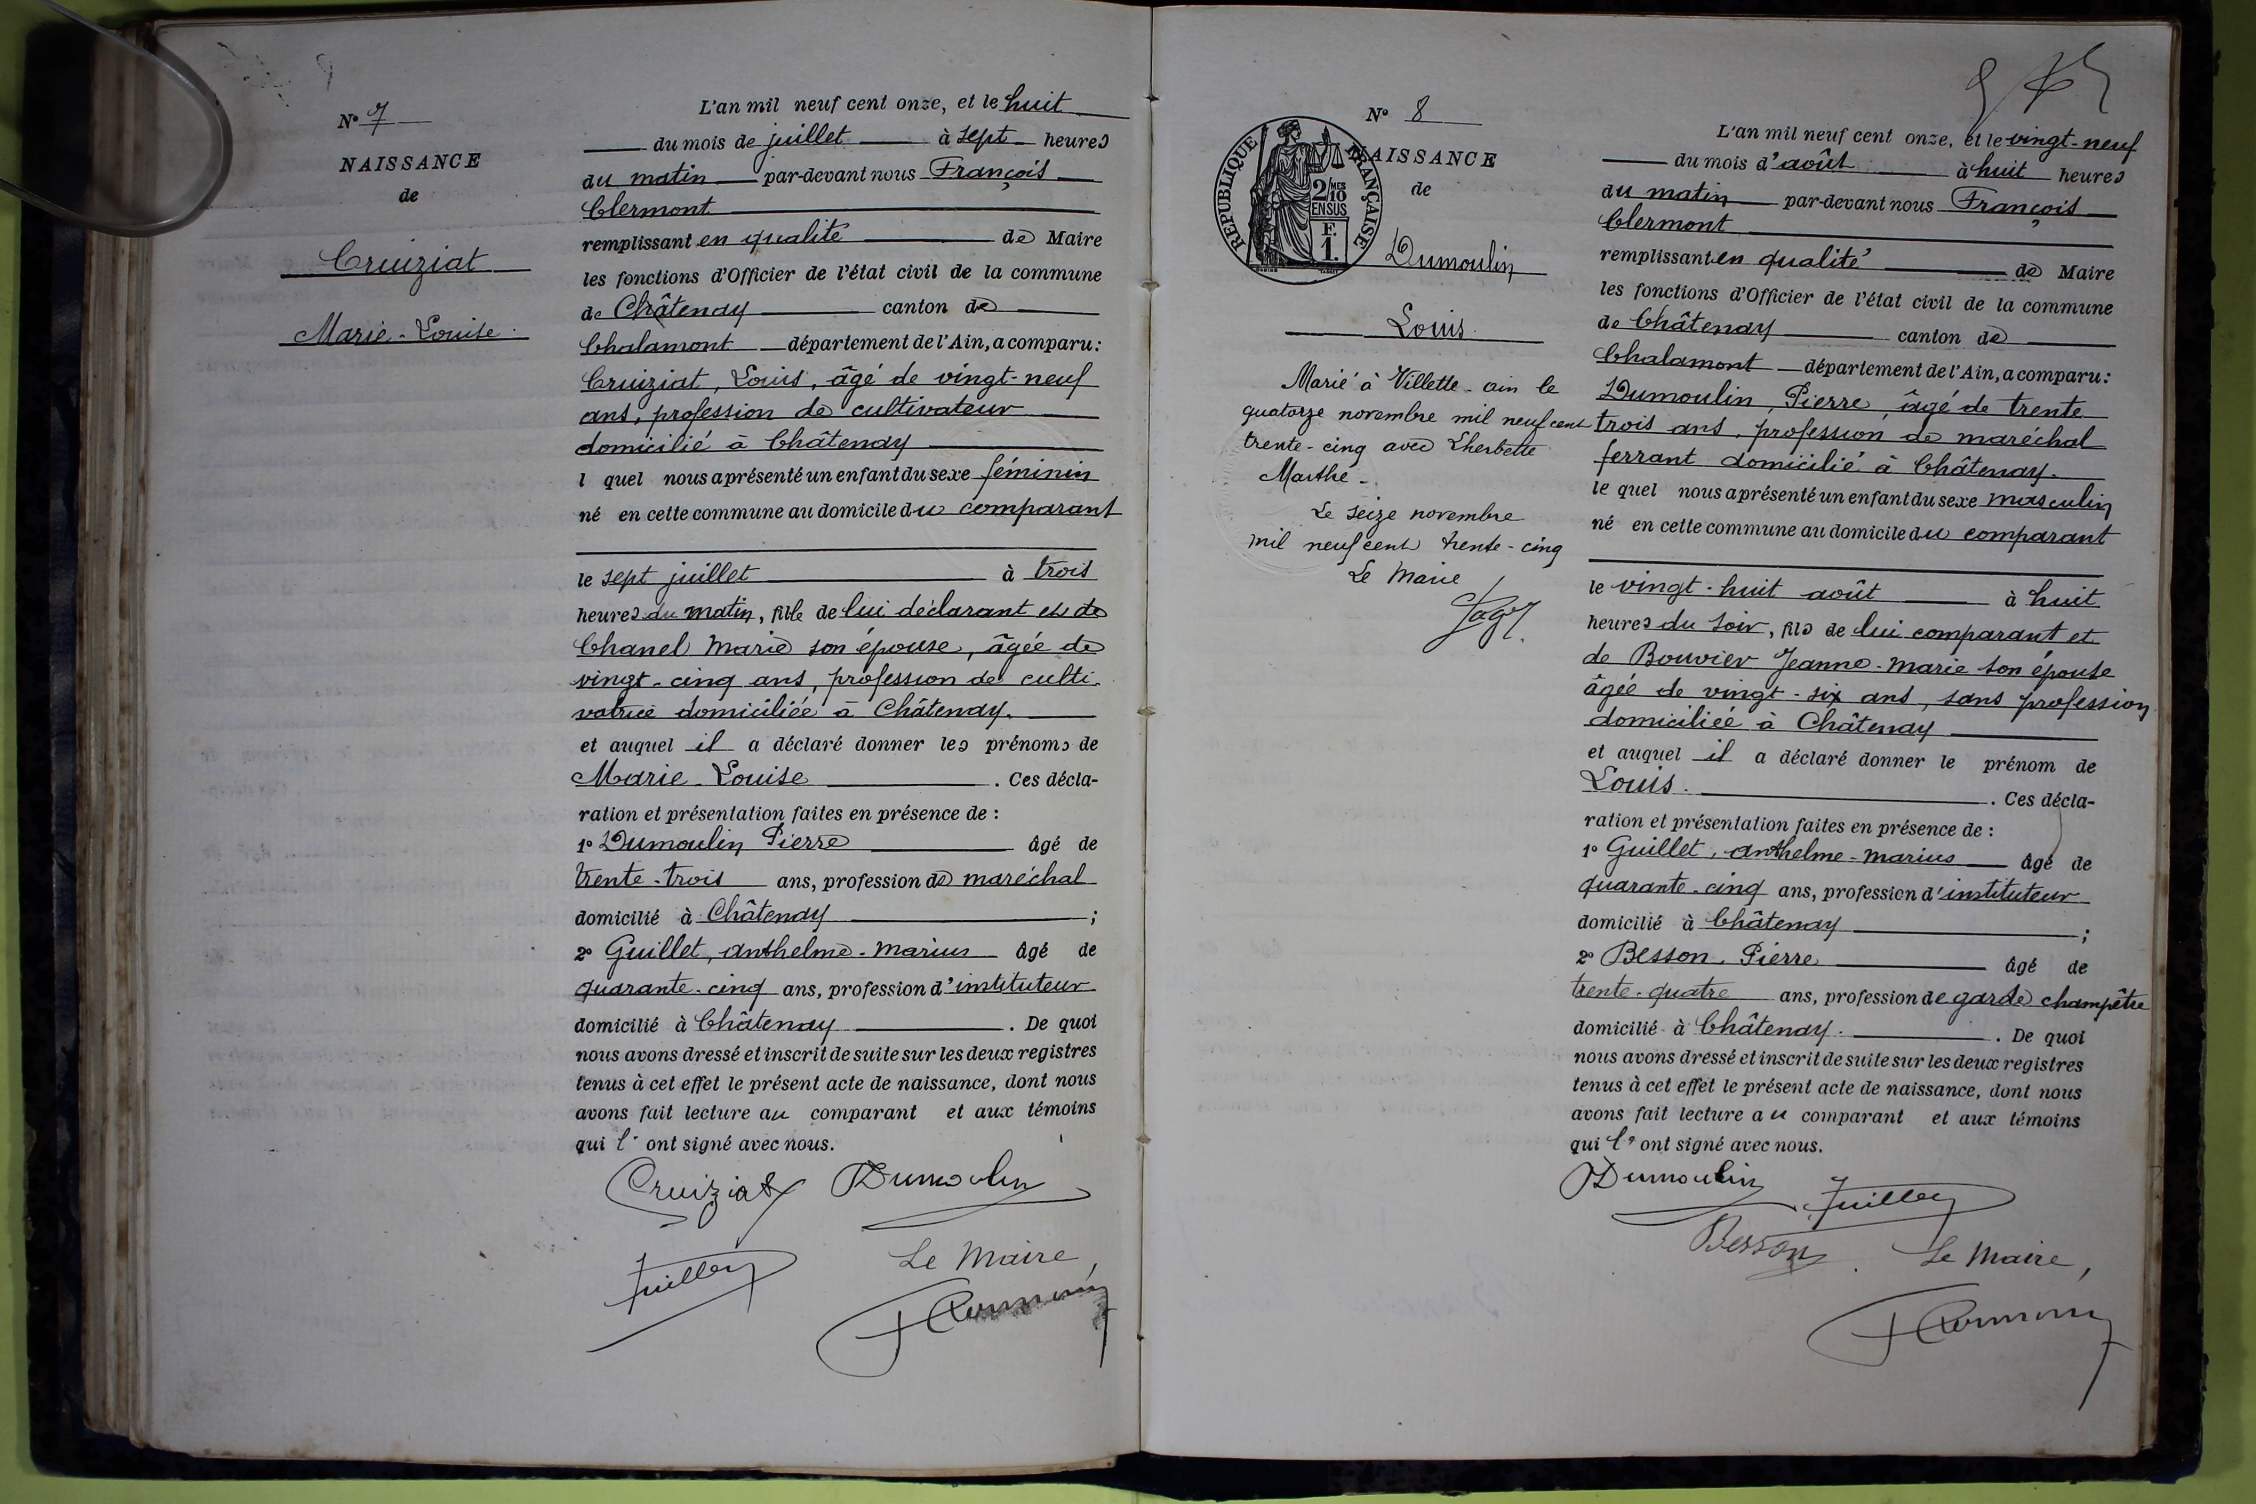 Nº 7
NAISSANCE
de
Cruiziat
Marie-Louise.
L'an mil neuf cent onze, et le huit
du mois de juillet à sept heures
du matin par-devant nous François
Clermont
remplissant en qualité de Maire
les fonctions d'Officier de l'état civil de la commune
de Châtenay canton de
Chalamont département de l'Ain, a comparu:
Cruiziat, Louis, âgé de vingt-neuf
ans, profession de cultivateur
domicilié à Châtenay
l quel nous a présenté un enfant du sexe féminin
né en cette commune au domicile du comparant
le sept juillet à trois
heures du matin, fille de lui déclarant et de
Chanel Marie son épouse, âgée de
vingt-cinq ans, profession de culti-
vatrice domiciliée à Châtenay.
et auquel il a déclaré donner les prénoms de
Marie-Louise . Ces décla-
ration et présentation faites en présence de :
1º Dumoulin Pierre âgé de
trente-trois ans, profession de maréchal
domicilié à Châtenay ;
2º Guillet, Anthelme-Marius âgé de
quarante-cinq ans, profession d'instituteur
domicilié à Châtenay . De quoi
nous avons dressé et inscrit de suite sur les deux registres
tenus à cet effet le présent acte de naissance, dont nous
avons fait lecture au comparant et aux témoins
qui l' ont signé avec nous.
Cruiziat Dumoulin
Guillet Le Maire,
F Clermont
Nº 8
NAISSANCE
de
RÉPUBLIQUE FRANÇAISE
2/MES
10
EN SUS
F.
1.
Dumoulin
Louis.
Marié à Villette-ain le
quatorze novembre mil neuf cent
trente-cinq avec Lherbette
Marthe-.
Le seize novembre
mil neuf cent trente-cinq
Le Maire
L'an mil neuf cent onze, et le vingt-neuf
du mois d'août à huit heures
du matin par-devant nous François
Clermont
remplissant en qualité de Maire
les fonctions d'Officier de l'état civil de la commune
de Châtenay canton de
Chalamont département de l'Ain, a comparu:
Dumoulin, Pierre, âgé de trente
trois ans, profession de maréchal
ferrant domicilié à Châtenay.
le quel nous a présenté un enfant du sexe masculin
né en cette commune au domicile du comparant
le vingt-huit août à huit
heures du soir, fils de lui comparant et
de Bouvier Jeanne-Marie son épouse
âgée de vingt-six ans, sans profession
domiciliée à Châtenay
et auquel il a déclaré donner le prénom de
Louis. . Ces décla-
ration et présentation faites en présence de :
1º Guillet, Anthelme-Marius âgé de
quarante-cinq ans, profession d'instituteur
domicilié à Châtenay ;
2º Besson, Pierre âgé de
trente-quatre ans, profession de garde champêtre
domicilié à Châtenay. . De quoi
nous avons dressé et inscrit de suite sur les deux registres
tenus à cet effet le présent acte de naissance, dont nous
avons fait lecture au comparant et aux témoins
qui l' ont signé avec nous.
Dumoulin Guillet
Besson Le Maire,
F Clermont